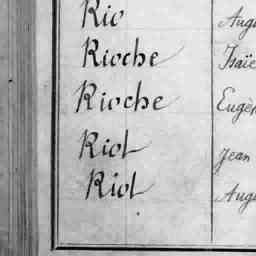 Rio Aug
Rioche Isaïe
Rioche Eugèn
Riot Jean
Riot Aug